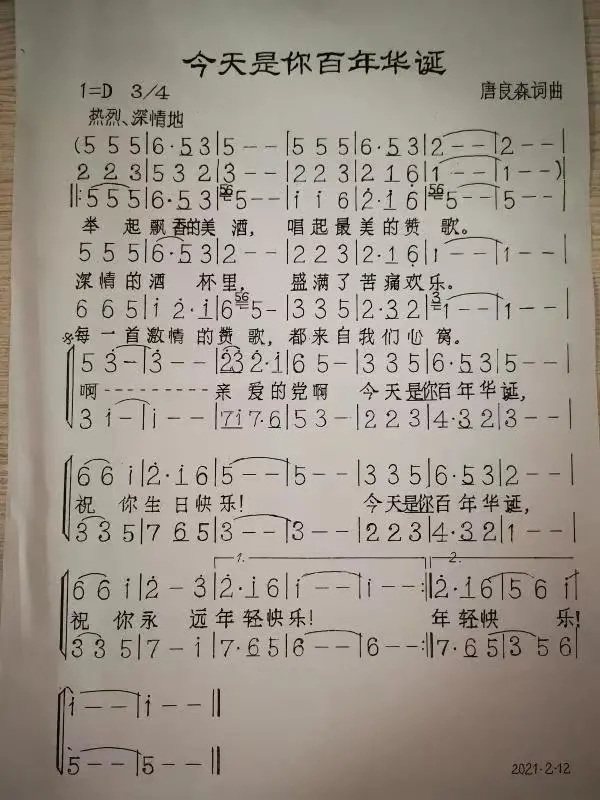 今天是你百年华诞
1=D 3/4 唐良森词曲
热烈、深情地
(5 5 5|6·5 3|5--|5 5 5|6·5 3|2--|2--|
2 2 3|5 3 2|3--|2 2 3|2 1 6|1--|1--)
‖:5 5 5|6·5 3|56 5--|i i 6|2·i 6|56 5--|5--|
举 起飘香的美 酒, 唱起最美的赞 歌。
5 5 5|6·5 3|2--|2 2 3|2·1 6|1--|1--|
深情的酒 杯里, 盛满了苦痛欢乐。
6 6 5|i 2·i|6 56 5-|3 3 5|2·3 2|3 1--|1--|
※每一首激情的赞 歌,都来自我们心 窝。
5 3-|3--|23 2·i|6 5-|3 3 5|6·5 3|2--|
啊--------- 亲 爱的党啊 今天是你百年华诞,
3 i-|i--|7i 7·6|5 3-|2 2 3|4·3 2|3--|
6 6 i|2·i 6|5--|5--|3 3 5|6·5 3|2--|
祝 你生日快乐! 今天是你百年华诞,
3 3 5|7 6 5|3--|3--|2 2 3|4·3 2|1--|
1. 2.
6 6 i|2-3|2·i 6|i--|i--:‖2·i 6|5 6 i|
祝 你永 远年轻快乐! 年轻快 乐!
3 3 5|7-i|7·6 5|6--|6--:‖7·6 5|3 5 6|
i--|i--‖
5--|5--‖
2021·2·12